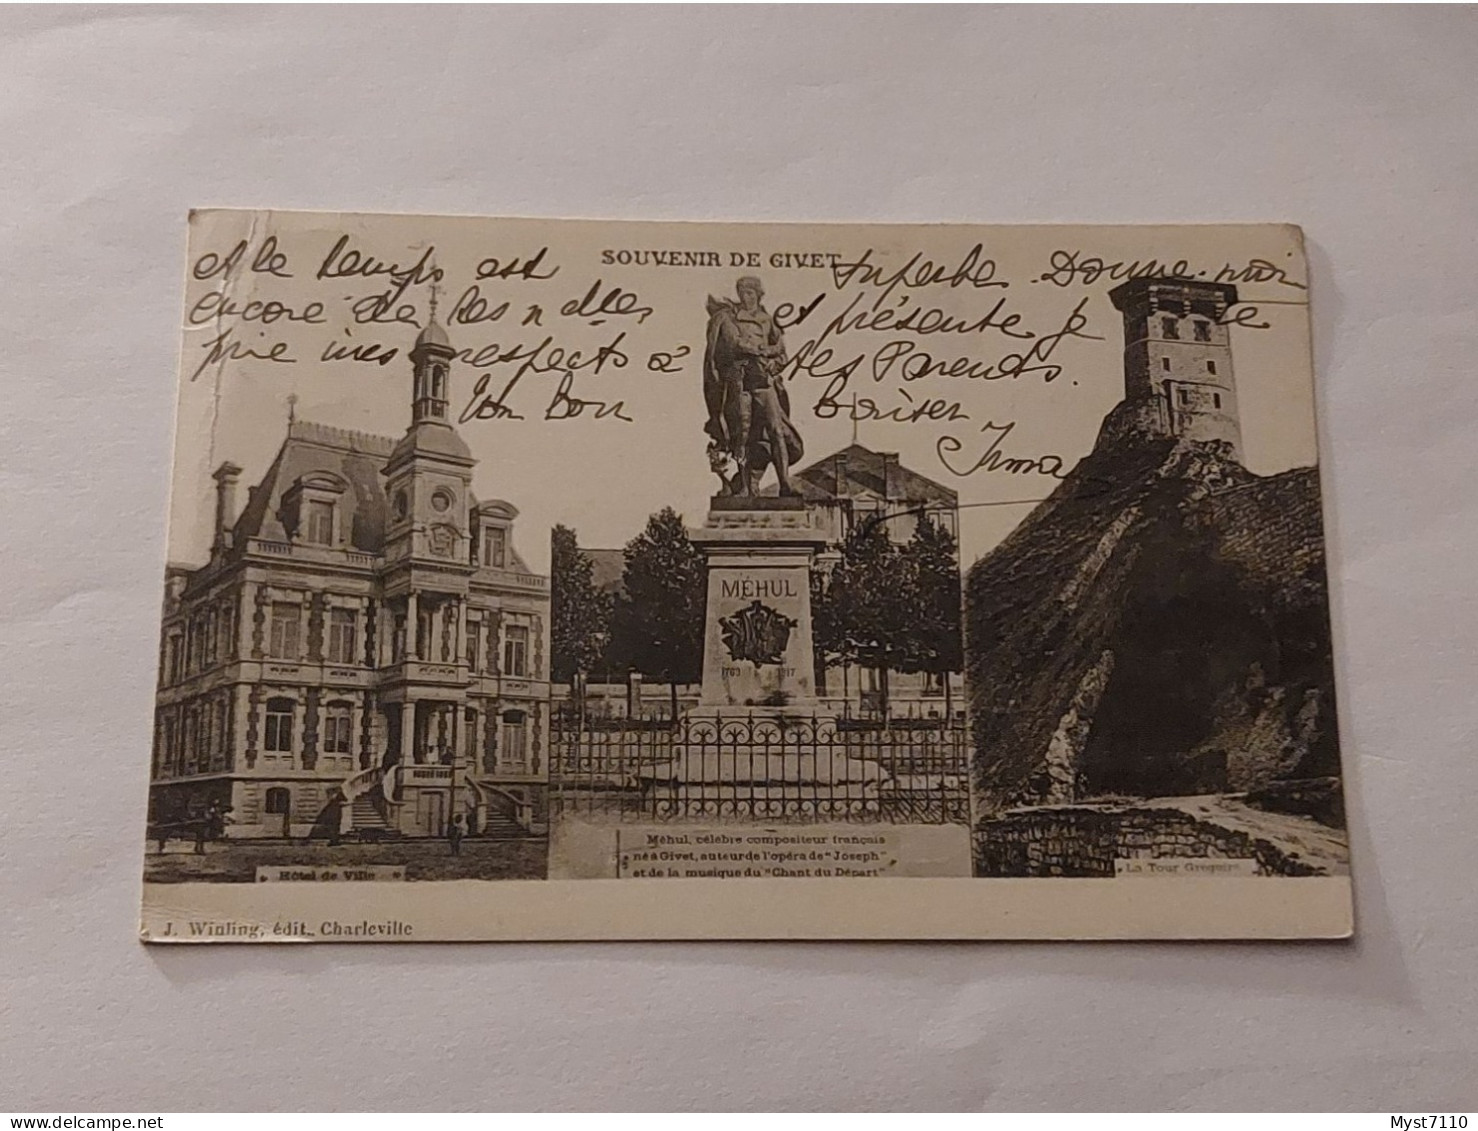 SOUVENIR DE GIVET
et le temps est superbe. Donne moi
encore de tes nelles et présente je te
prie mes respects à tes Parents.
Un bon baiser
Irma
MÉHUL
1763 1817
Hôtel de Ville
Méhul, célèbre compositeur français
né à Givet, auteur de l'opéra de "Joseph"
et de la musique du "Chant du Départ"
La Tour Grégoire
J. Winling, édit. Charleville
Myst7110